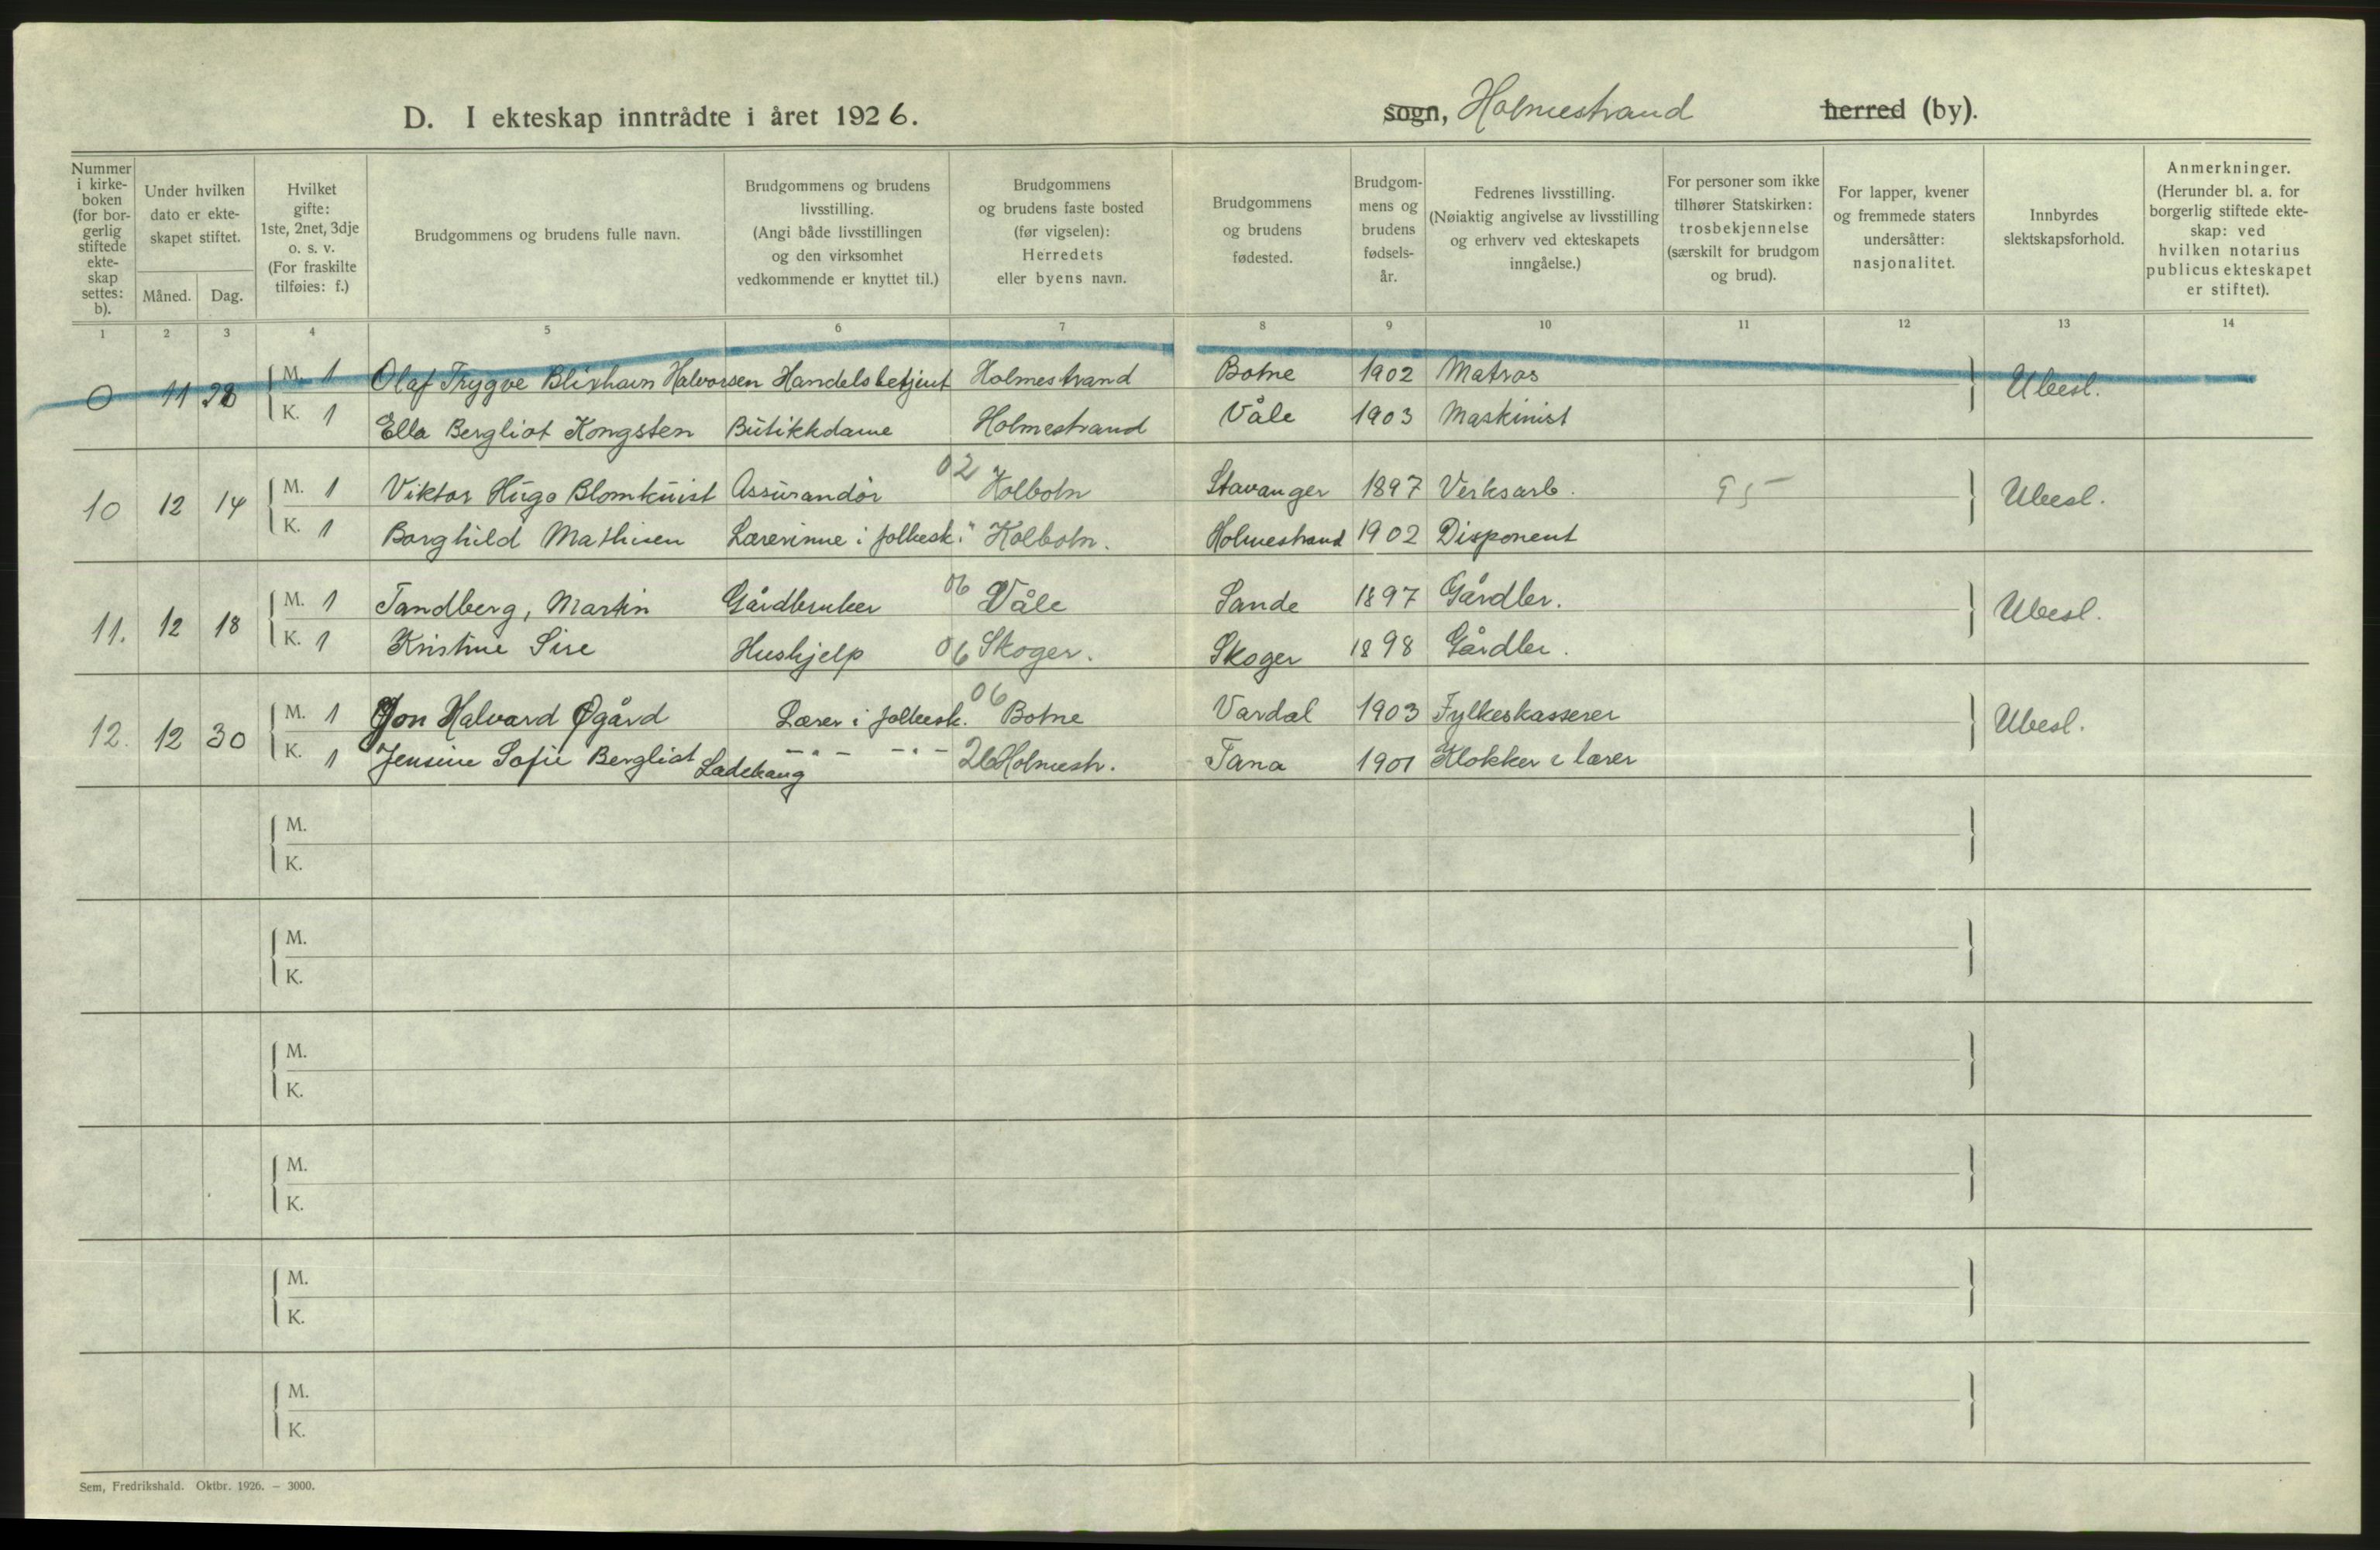 D. I ekteskap inntrådte i året 1926.
sogn, Holmestrand herred (by).
Nummer i kirke-boken (for bor-gerlig stiftede ekte-skap settes: b).
Under hvilken dato er ekte-skapet stiftet.
Måned. Dag.
Hvilket gifte: 1ste, 2net, 3dje o. s. v. (For fraskilte tilføies: f.)
Brudgommens og brudens fulle navn.
Brudgommens og brudens livsstilling. (Angi både livsstillingen og den virksomhet vedkommende er knyttet til.)
Brudgommens og brudens faste bosted (før vigselen): Herredets eller byens navn.
Brudgommens og brudens fødested.
Brudgom-mens og brudens fødsels-år.
Fedrenes livsstilling. (Nøiaktig angivelse av livsstilling og erhverv ved ekteskapets inngåelse.)
For personer som ikke tilhører Statskirken: trosbekjennelse (særskilt for brudgom og brud).
For lapper, kvener og fremmede staters undersåtter: nasjonalitet.
Innbyrdes slektskapsforhold.
Anmerkninger. (Herunder bl. a. for borgerlig stiftede ekte-skap: ved hvilken notarius publicus ekteskapet er stiftet).
1 2 3 4 5 6 7 8 9 10 11 12 13 14
0 11 28 M. 1 Olaf Trygve Blixhavn Halvorsen Handelsbetjent Holmestrand Botne 1902 Matros Ubesl.
K. 1 Ella Bergliot Kongsten Butikkdame Holmestrand Våle 1903 Maskinist
10 12 14 M. 1 Viktor Hugo Blomkuist Assurandør 02 Kolbotn Stavanger 1897 Verksarb. 95 Ubesl.
K. 1 Borghild Mathisen Lærerinne i folkesk. " Kolbotn. Holmestrand 1902 Disponent
11. 12 18 M. 1 Tandberg, Martin Gårdbruker 06 Våle Sande 1897 Gårdbr. Ubesl.
K. 1 Kristine Sire Hushjelp 06 Skoger. Skoger 1898 Gårdbr.
12. 12 30 M. 1 Jon Halvard Øgård Lærer i folkesk. 06 Botne Vardal 1903 Fylkeskasserer Ubesl.
K. 1 Jensine Sofie Bergliot Ladehaug -"- -"- 26 Holmestr. Tana 1901 Klokker & lærer
M.
K.
M.
K.
M.
K.
M.
K.
M.
K.
M.
K.
Sem, Fredrikshald. Oktbr. 1926. – 3000.